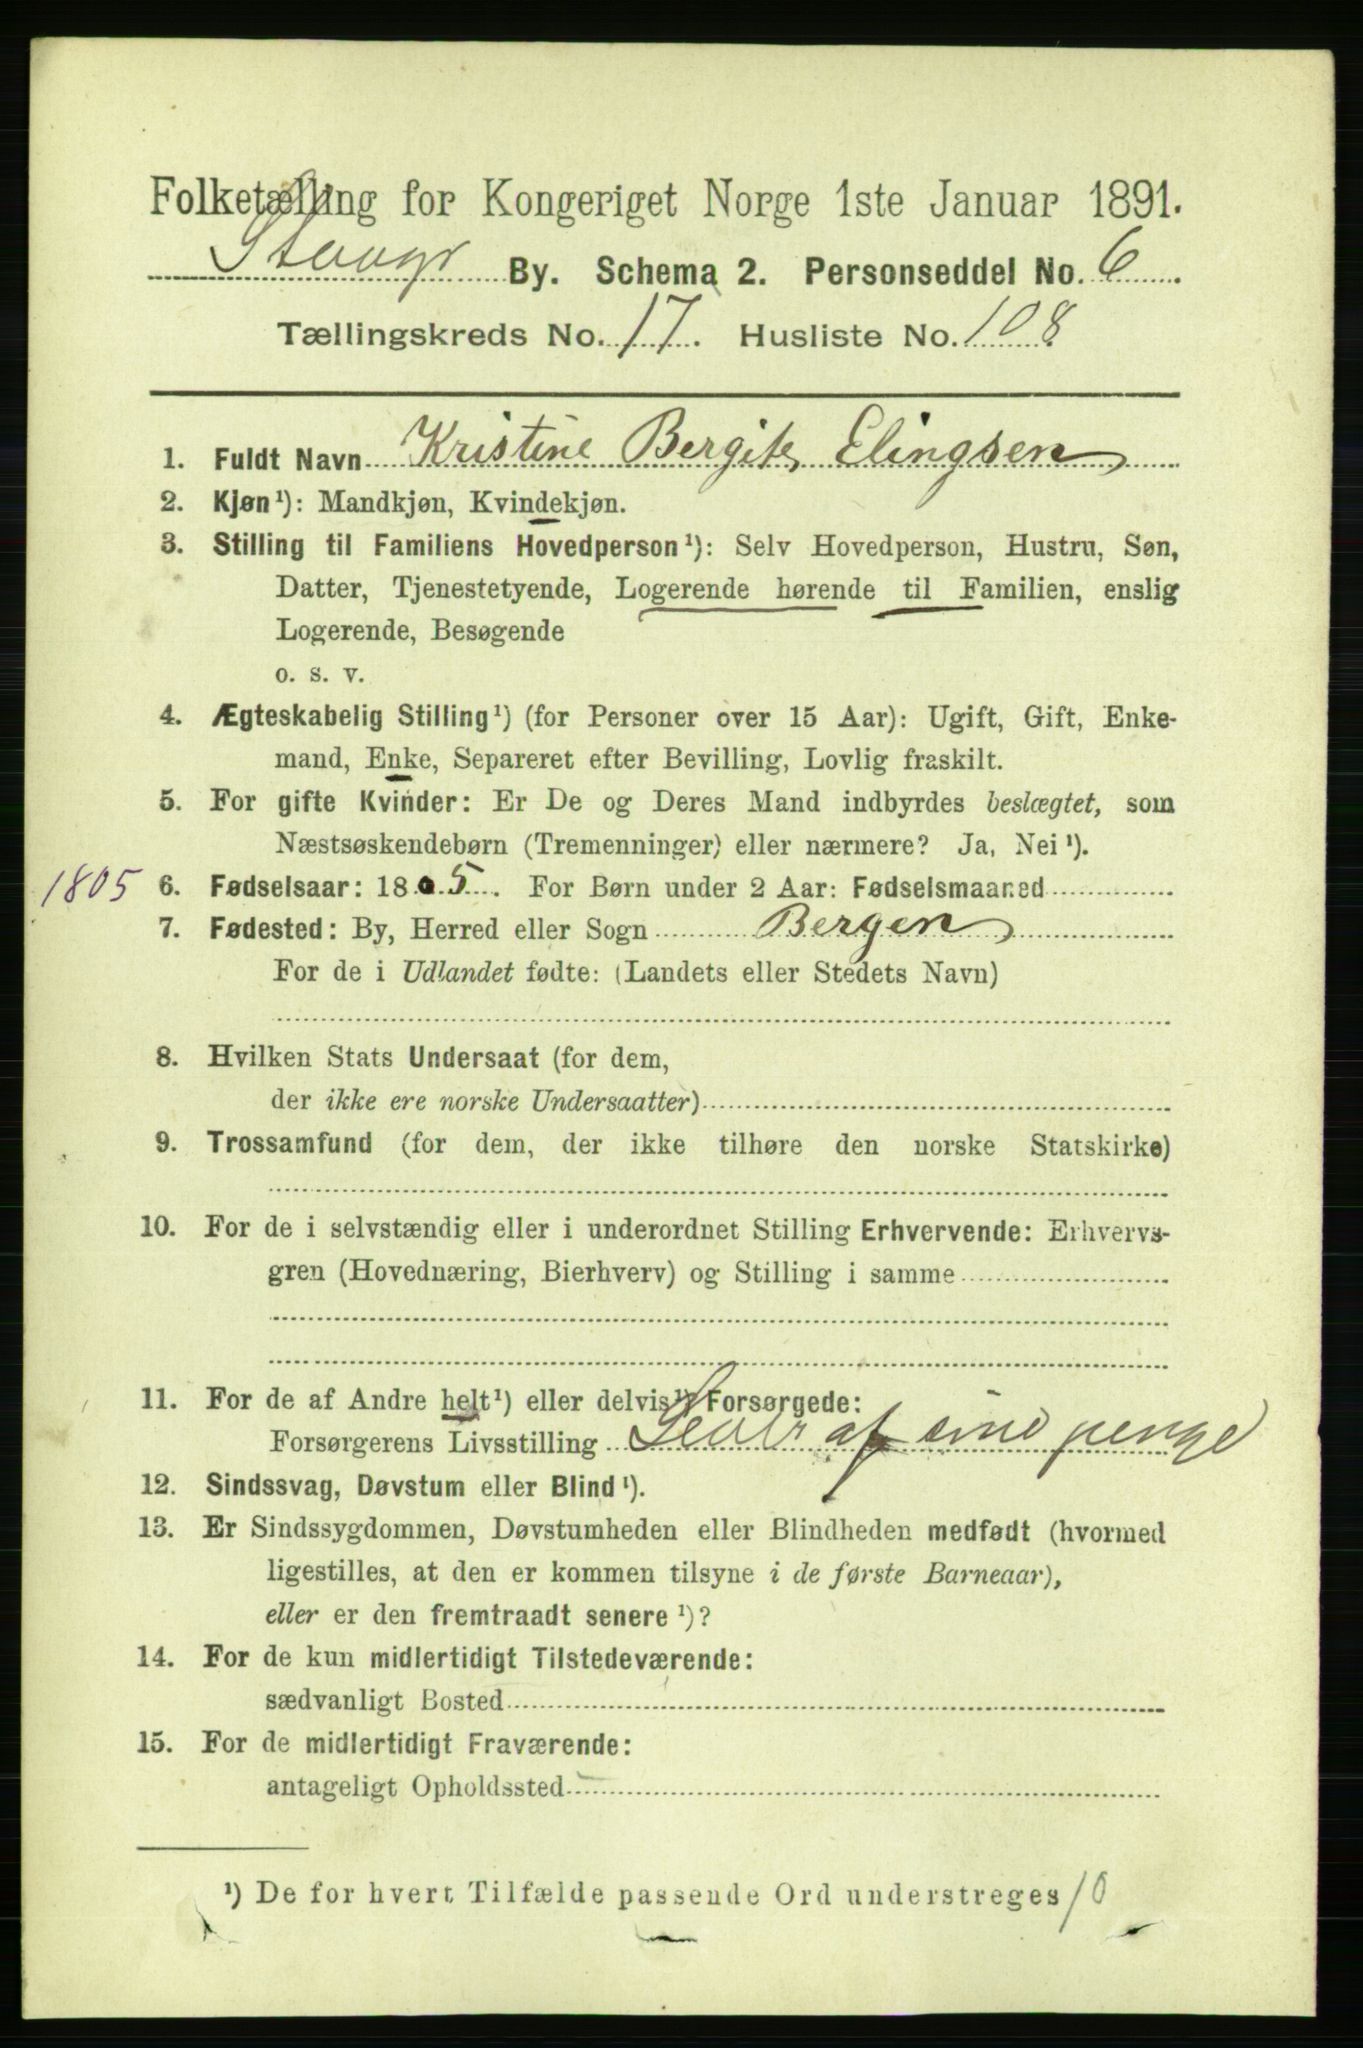 Folketælling for Kongeriget Norge 1ste Januar 1891.
Stavgr By. Schema 2. Personseddel No. 6.
Tællingskreds No. 17. Husliste No. 108
1. Fuldt Navn Kristine Bergite Elingsen
2. Kjøn¹): Mandkjøn, Kvindekjøn.
3. Stilling til Familiens Hovedperson¹): Selv Hovedperson, Hustru, Søn,
Datter, Tjenestetyende, Logerende hørende til Familien, enslig
Logerende, Besøgende
o. s. v.
4. Ægteskabelig Stilling¹) (for Personer over 15 Aar): Ugift, Gift, Enke-
mand, Enke, Separeret efter Bevilling, Lovlig fraskilt.
5. For gifte Kvinder: Er De og Deres Mand indbyrdes beslægtet, som
Næstsøskendebørn (Tremenninger) eller nærmere? Ja, Nei¹).
1805 6. Fødselsaar: 1805. For Børn under 2 Aar: Fødselsmaaned
7. Fødested: By, Herred eller Sogn Bergen
For de i Udlandet fødte: (Landets eller Stedets Navn)
8. Hvilken Stats Undersaat (for dem,
der ikke ere norske Undersaatter)
9. Trossamfund (for dem, der ikke tilhøre den norske Statskirke)
10. For de i selvstændig eller i underordnet Stilling Erhvervende: Erhvervs-
gren (Hovednæring, Bierhverv) og Stilling i samme
11. For de af Andre helt¹) eller delvis¹) Forsørgede:
Forsørgerens Livsstilling Lever af sine penge
12. Sindssvag, Døvstum eller Blind¹).
13. Er Sindssygdommen, Døvstumheden eller Blindheden medfødt (hvormed
ligestilles, at den er kommen tilsyne i de første Barneaar),
eller er den fremtraadt senere¹)?
14. For de kun midlertidigt Tilstedeværende:
sædvanligt Bosted
15. For de midlertidigt Fraværende:
antageligt Opholdssted
¹) De for hvert Tilfælde passende Ord understreges 10